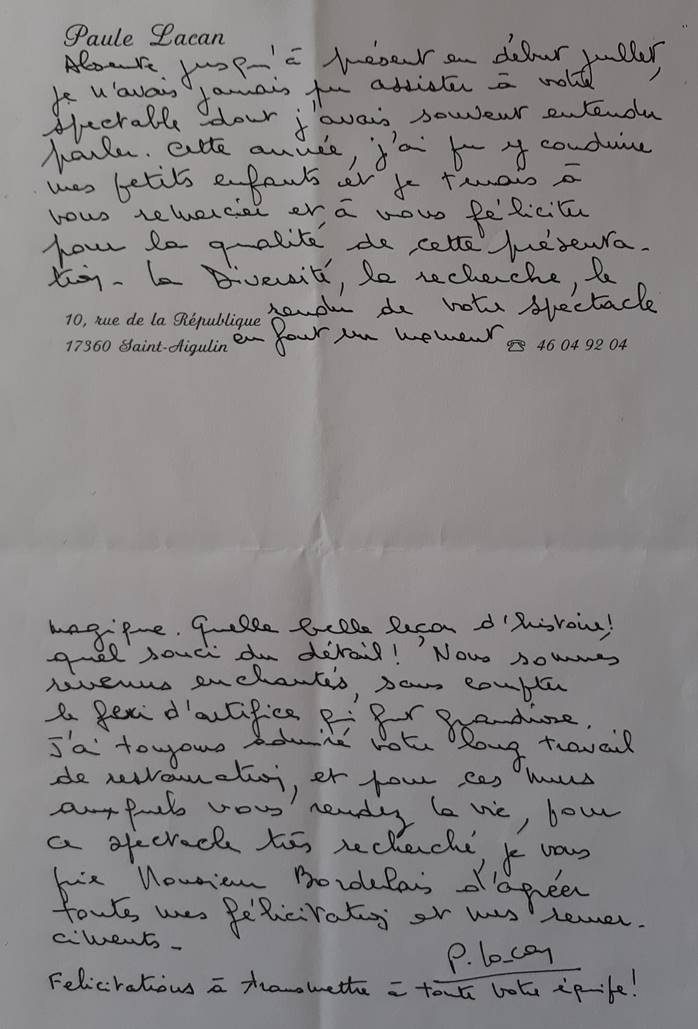 Paule Lacan
Absente jusqu'à présent en début juillet,
je n'avais jamais pu assister à votre
spectable dont j'avais souvent entendu
parler. Cette année, j'ai pu y conduire
mes petits enfants et je tenais à
vous remercier et à vous féliciter
pour la qualité de cette présenta-
tion - la Diversité, la recherche, le
rendu de votre spectacle
10, rue de la République
en font un moment
17360 Saint-Aigulin ☎ 46 04 92 04
magique. Quelle belle leçon d'histoire!
quel souci du détail! Nous sommes
revenus enchantés, sans compter
le feu d'artifice qui fut grandiose.
J'ai toujours admiré votre long travail
de restauration, et pour ces murs
auxquels vous rendez la vie, pour
ce spectacle très recherché, je vous
prie Monsieur Bordelais d'agréer
toutes mes félicitations et mes remer-
ciments -
P. Lacan
Felicitations à transmettre à toute votre équipe!